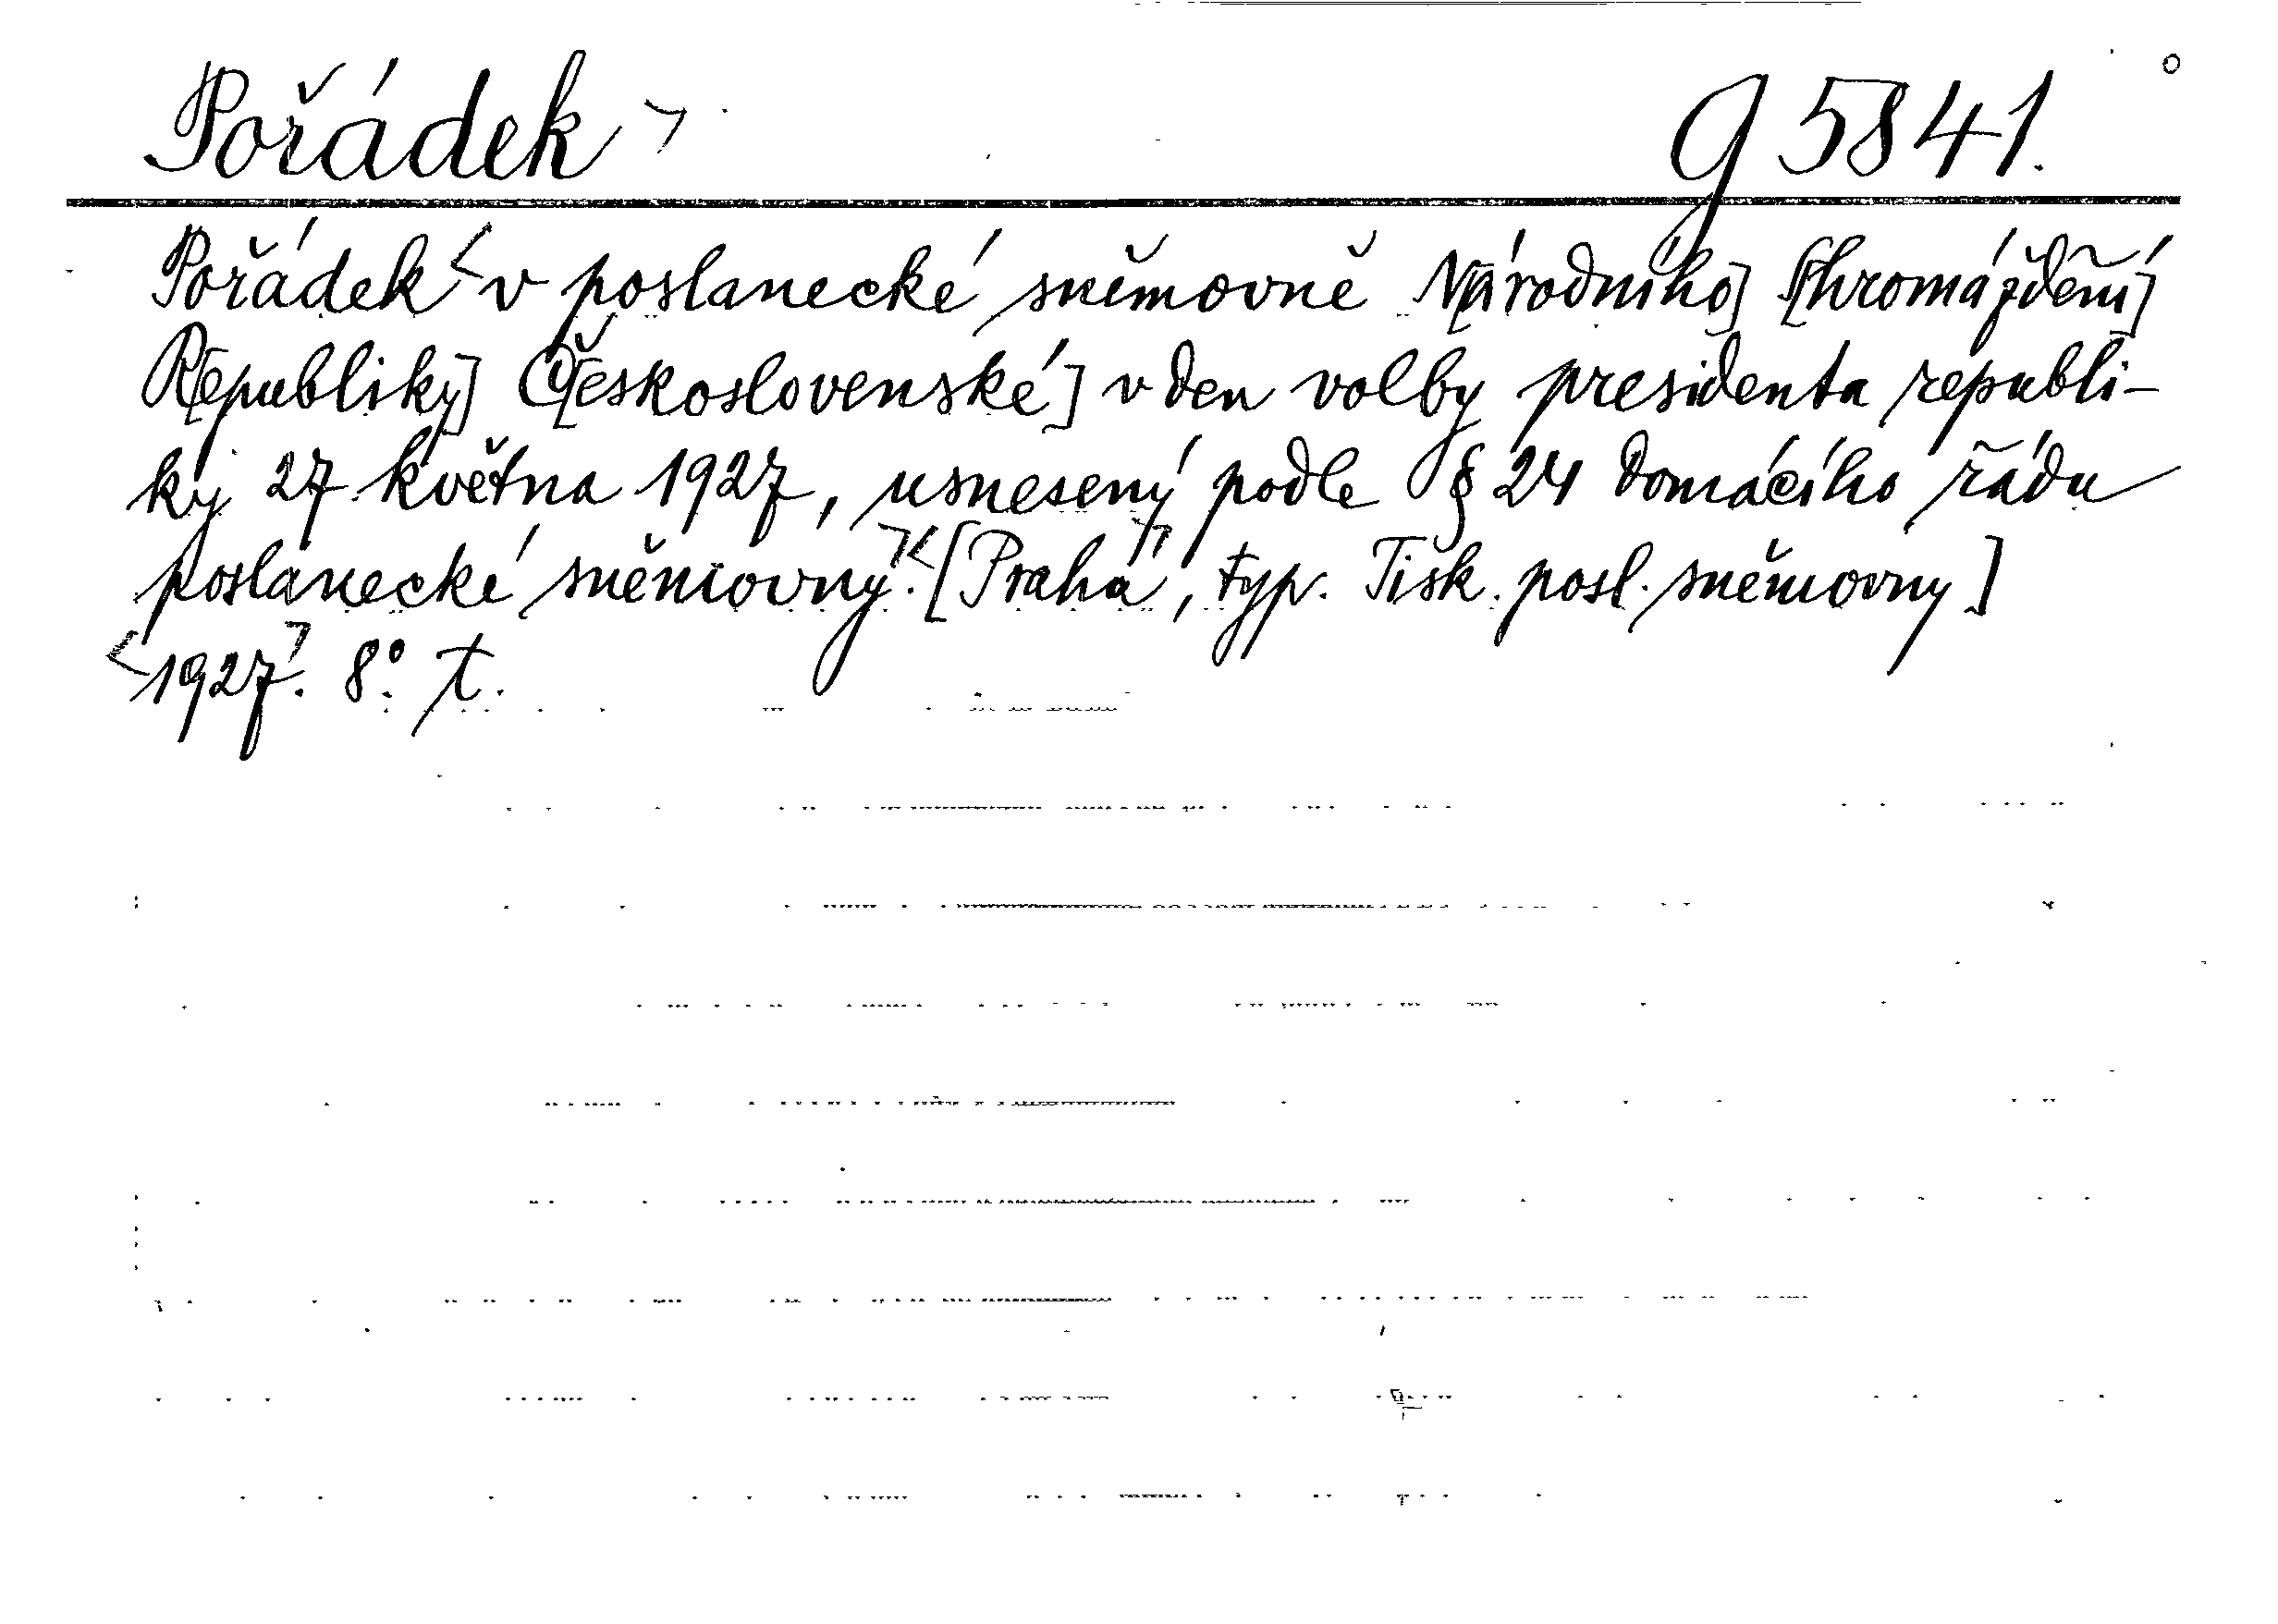 Pořádek > g 5841.
Pořádek < v poslanecké sněmovně N[árodního] S[hromáždění]
R[epubliky] Č[eskoslovenské] v den volby presidenta republi-
ky 27. května 1927, usnesený podle § 24 domácího řádu
poslanecké sněmovny.>< [Praha>, typ. Tisk. posl. sněmovny]
<1927>. 8°. t.